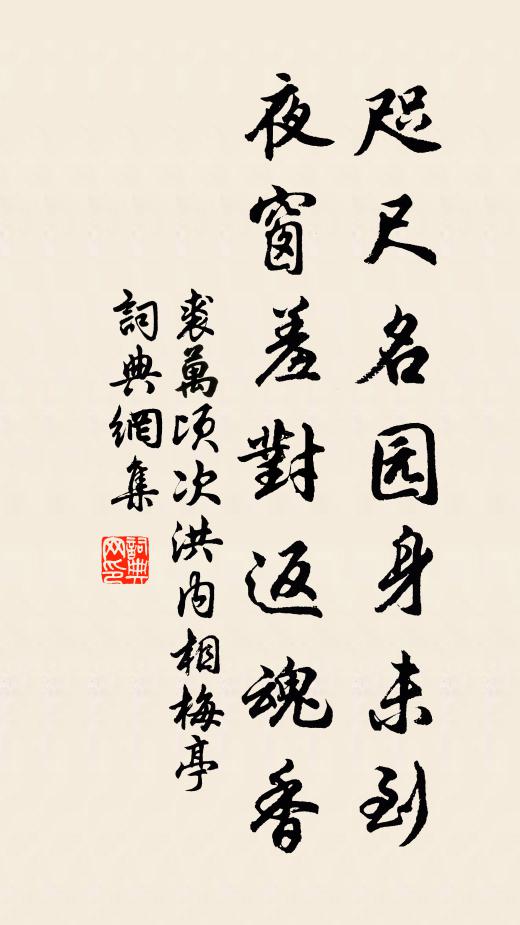 咫尺名园身未到
夜窗羞對返魂香
裘萬頃次洪内相梅亭
詞典網集
詞典网印